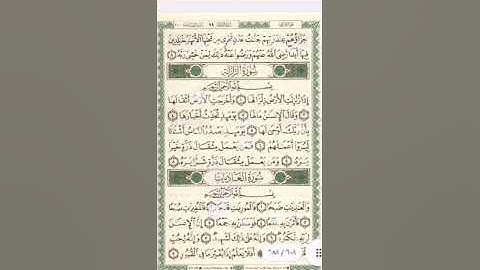 جَزَآؤُهُمْ عِندَ رَبِّهِمْ جَنَّٰتُ عَدْنٍ تَجْرِى مِن تَحْتِهَا ٱلْأَنْهَٰرُ خَٰلِدِينَ
فِيهَآ أَبَدًا رَّضِىَ ٱللَّهُ عَنْهُمْ وَرَضُوا۟ عَنْهُ ذَٰلِكَ لِمَنْ خَشِىَ رَبَّهُۥ ٨
سُورَةُ الزَّلْزَلَةِ
بِسْمِ ٱللَّهِ ٱلرَّحْمَٰنِ ٱلرَّحِيمِ
إِذَا زُلْزِلَتِ ٱلْأَرْضُ زِلْزَالَهَا ١ وَأَخْرَجَتِ ٱلْأَرْضُ أَثْقَالَهَا
٢ وَقَالَ ٱلْإِنسَٰنُ مَا لَهَا ٣ يَوْمَئِذٍ تُحَدِّثُ أَخْبَارَهَا ٤
بِأَنَّ رَبَّكَ أَوْحَىٰ لَهَا ٥ يَوْمَئِذٍ يَصْدُرُ ٱلنَّاسُ أَشْتَاتًا
لِّيُرَوْا۟ أَعْمَٰلَهُمْ ٦ فَمَن يَعْمَلْ مِثْقَالَ ذَرَّةٍ خَيْرًا
يَرَهُۥ ٧ وَمَن يَعْمَلْ مِثْقَالَ ذَرَّةٍ شَرًّا يَرَهُۥ ٨
سُورَةُ العَادِيَاتِ
بِسْمِ ٱللَّهِ ٱلرَّحْمَٰنِ ٱلرَّحِيمِ
وَٱلْعَٰدِيَٰتِ ضَبْحًا ١ فَٱلْمُورِيَٰتِ قَدْحًا ٢ فَٱلْمُغِيرَٰتِ صُبْحًا
٣ فَأَثَرْنَ بِهِۦ نَقْعًا ٤ فَوَسَطْنَ بِهِۦ جَمْعًا ٥ إِنَّ ٱلْإِنسَٰنَ
لِرَبِّهِۦ لَكَنُودٌ ٦ وَإِنَّهُۥ عَلَىٰ ذَٰلِكَ لَشَهِيدٌ ٧ وَإِنَّهُۥ لِحُبِّ
أَفَلَا يَعْلَمُ إِذَا بُعْثِرَ مَا فِى ٱلْقُبُورِ ٩